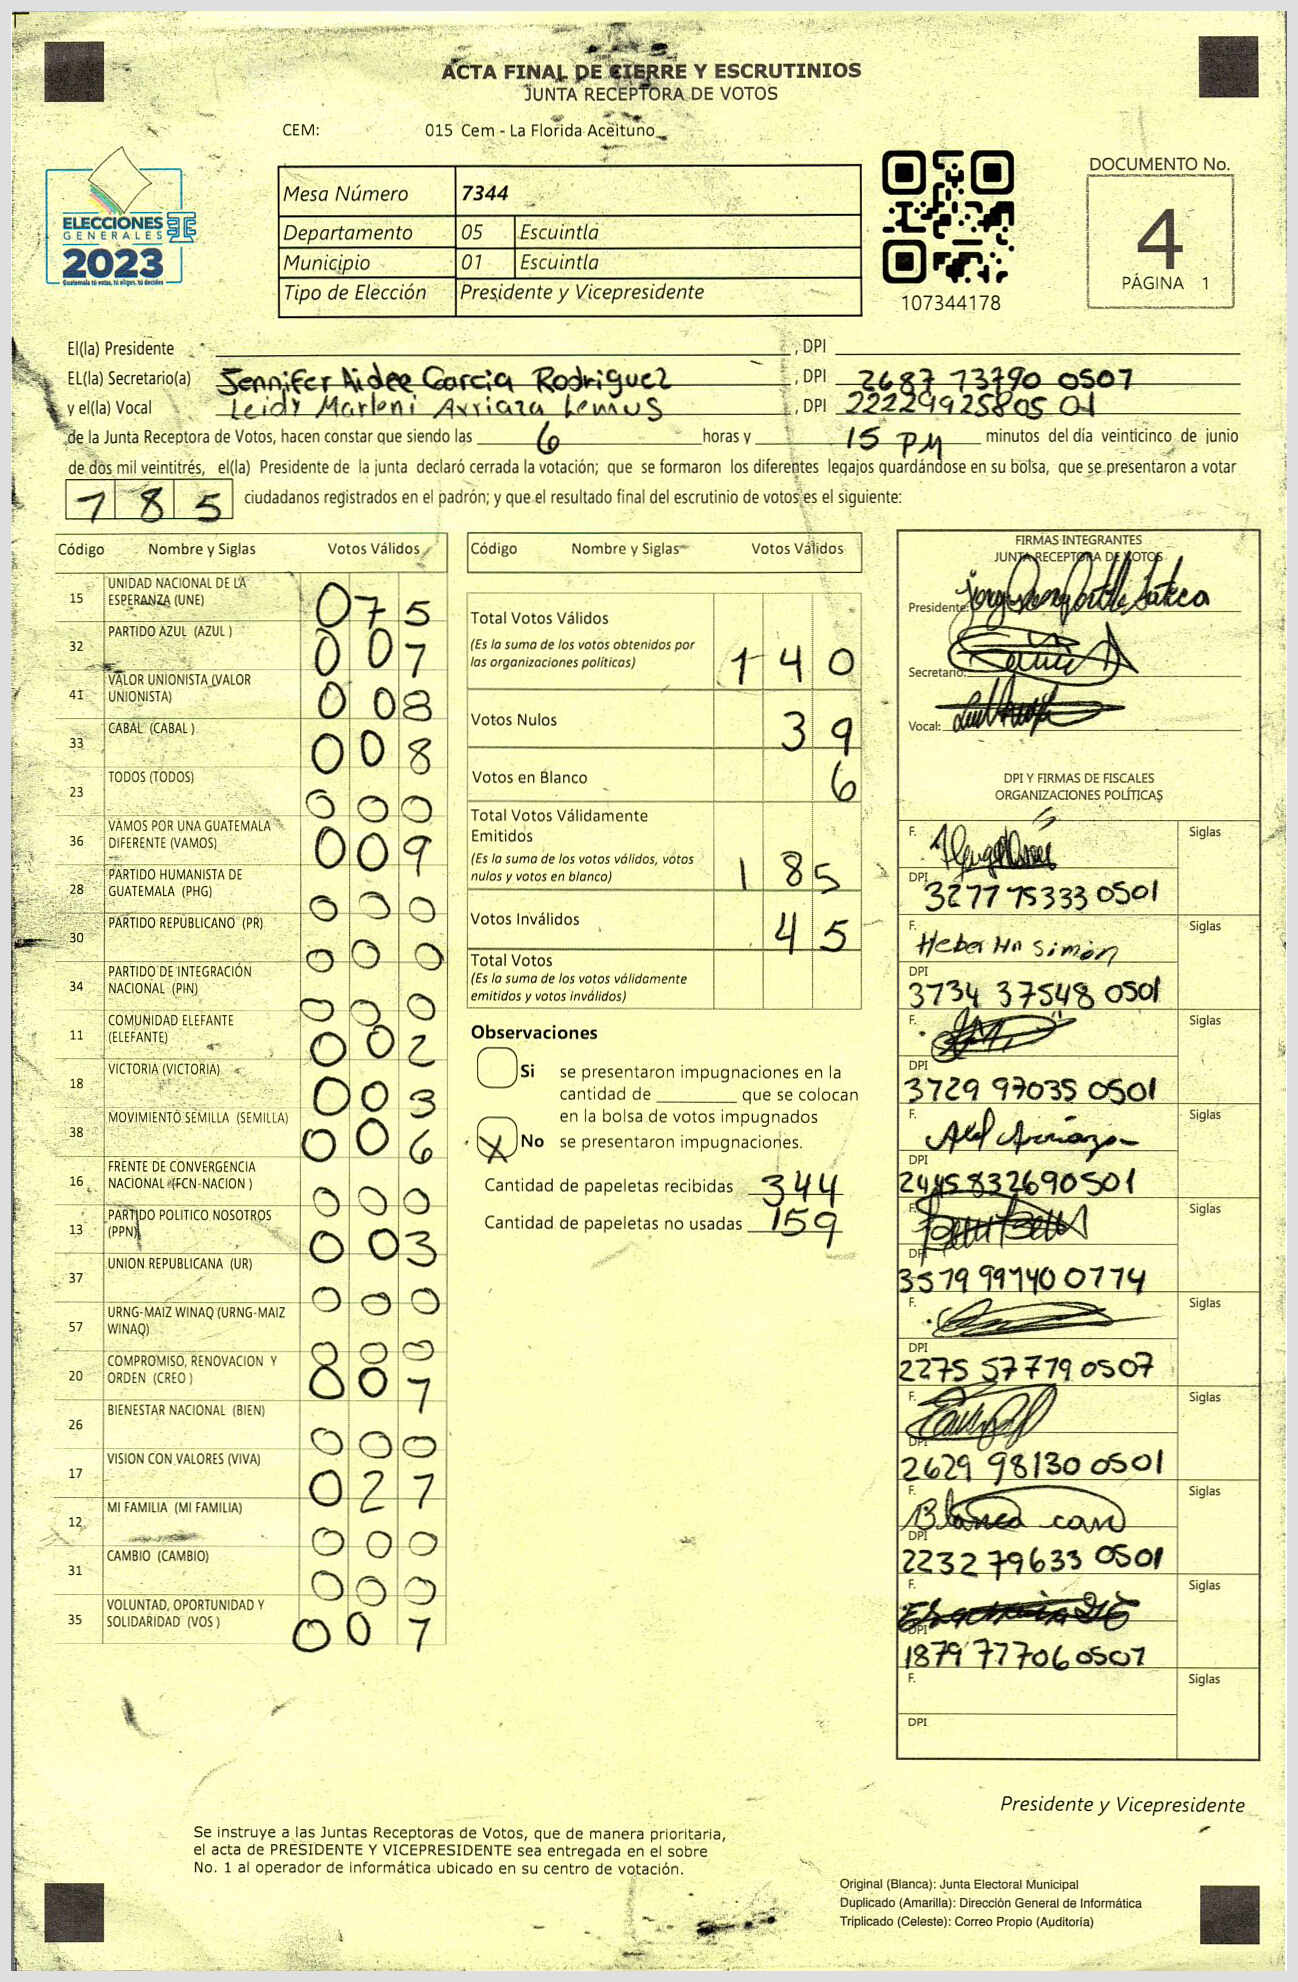 ACTA FINAL DE CIERRE Y ESCRUTINIOS
JUNTA RECEPTORA DE VOTOS
CEM: 015 Cem - La Florida Aceituno
ELECCIONES
GENERALES
2023
Guatemala tú votas, tú eliges, tú decides
Mesa Número 7344
Departamento 05 Escuintla
Municipio 01 Escuintla
Tipo de Elección Presidente y Vicepresidente
107344178
DOCUMENTO No.
4
PÁGINA 1
El(la) Presidente , DPI
EL(la) Secretario(a) Jennifer Aidee Garcia Rodriguez , DPI 2687 73790 0507
y el(la) Vocal Leidy Marleni Arriaza Lemus , DPI 2222992580501
de la Junta Receptora de Votos, hacen constar que siendo las 6 horas y 15 PM minutos del día veinticinco de junio
de dos mil veintitrés, el(la) Presidente de la junta declaró cerrada la votación; que se formaron los diferentes legajos guardándose en su bolsa, que se presentaron a votar
785 ciudadanos registrados en el padrón; y que el resultado final del escrutinio de votos es el siguiente:
Código Nombre y Siglas Votos Válidos
15 UNIDAD NACIONAL DE LA ESPERANZA (UNE) 075
32 PARTIDO AZUL (AZUL ) 007
41 VALOR UNIONISTA (VALOR UNIONISTA) 008
33 CABAL (CABAL ) 008
23 TODOS (TODOS) 000
36 VAMOS POR UNA GUATEMALA DIFERENTE (VAMOS) 009
28 PARTIDO HUMANISTA DE GUATEMALA (PHG) 000
30 PARTIDO REPUBLICANO (PR) 000
34 PARTIDO DE INTEGRACIÓN NACIONAL (PIN) 000
11 COMUNIDAD ELEFANTE (ELEFANTE) 002
18 VICTORIA (VICTORIA) 003
38 MOVIMIENTO SEMILLA (SEMILLA) 006
16 FRENTE DE CONVERGENCIA NACIONAL (FCN-NACION ) 000
13 PARTIDO POLITICO NOSOTROS (PPN) 003
37 UNION REPUBLICANA (UR) 000
57 URNG-MAIZ WINAQ (URNG-MAIZ WINAQ) 000
20 COMPROMISO, RENOVACION Y ORDEN (CREO ) 007
26 BIENESTAR NACIONAL (BIEN) 000
17 VISION CON VALORES (VIVA) 027
12 MI FAMILIA (MI FAMILIA) 000
31 CAMBIO (CAMBIO) 000
35 VOLUNTAD, OPORTUNIDAD Y SOLIDARIDAD (VOS ) 007
Código Nombre y Siglas Votos Válidos
Total Votos Válidos
(Es la suma de los votos obtenidos por
las organizaciones políticas) 140
Votos Nulos 39
Votos en Blanco 6
Total Votos Válidamente
Emitidos
(Es la suma de los votos válidos, votos
nulos y votos en blanco) 185
Votos Inválidos 45
Total Votos
(Es la suma de los votos válidamente
emitidos y votos inválidos)
Observaciones
Si se presentaron impugnaciones en la
cantidad de ________ que se colocan
en la bolsa de votos impugnados
X No se presentaron impugnaciones.
Cantidad de papeletas recibidas 344
Cantidad de papeletas no usadas 159
FIRMAS INTEGRANTES
JUNTA RECEPTORA DE VOTOS
Presidente:
Secretario:
Vocal:
DPI Y FIRMAS DE FISCALES
ORGANIZACIONES POLÍTICAS
F. Siglas
DPI 3277 75333 0501
F. Heber Hn Simón Siglas
DPI 3734 37548 0501
F. Siglas
DPI 3729 97035 0501
F. Siglas
DPI 2445832690501
F. Siglas
DPI 3579 997400774
F. Siglas
DPI 2275 57779 0507
F. Siglas
DPI 2629 98130 0501
F. Blanca Siglas
DPI 2232 79633 0501
F. Siglas
DPI 1879 77706 0507
F. Siglas
DPI
Presidente y Vicepresidente
Se instruye a las Juntas Receptoras de Votos, que de manera prioritaria,
el acta de PRESIDENTE Y VICEPRESIDENTE sea entregada en el sobre
No. 1 al operador de informática ubicado en su centro de votación.
Original (Blanca): Junta Electoral Municipal
Duplicado (Amarilla): Dirección General de Informática
Triplicado (Celeste): Correo Propio (Auditoría)